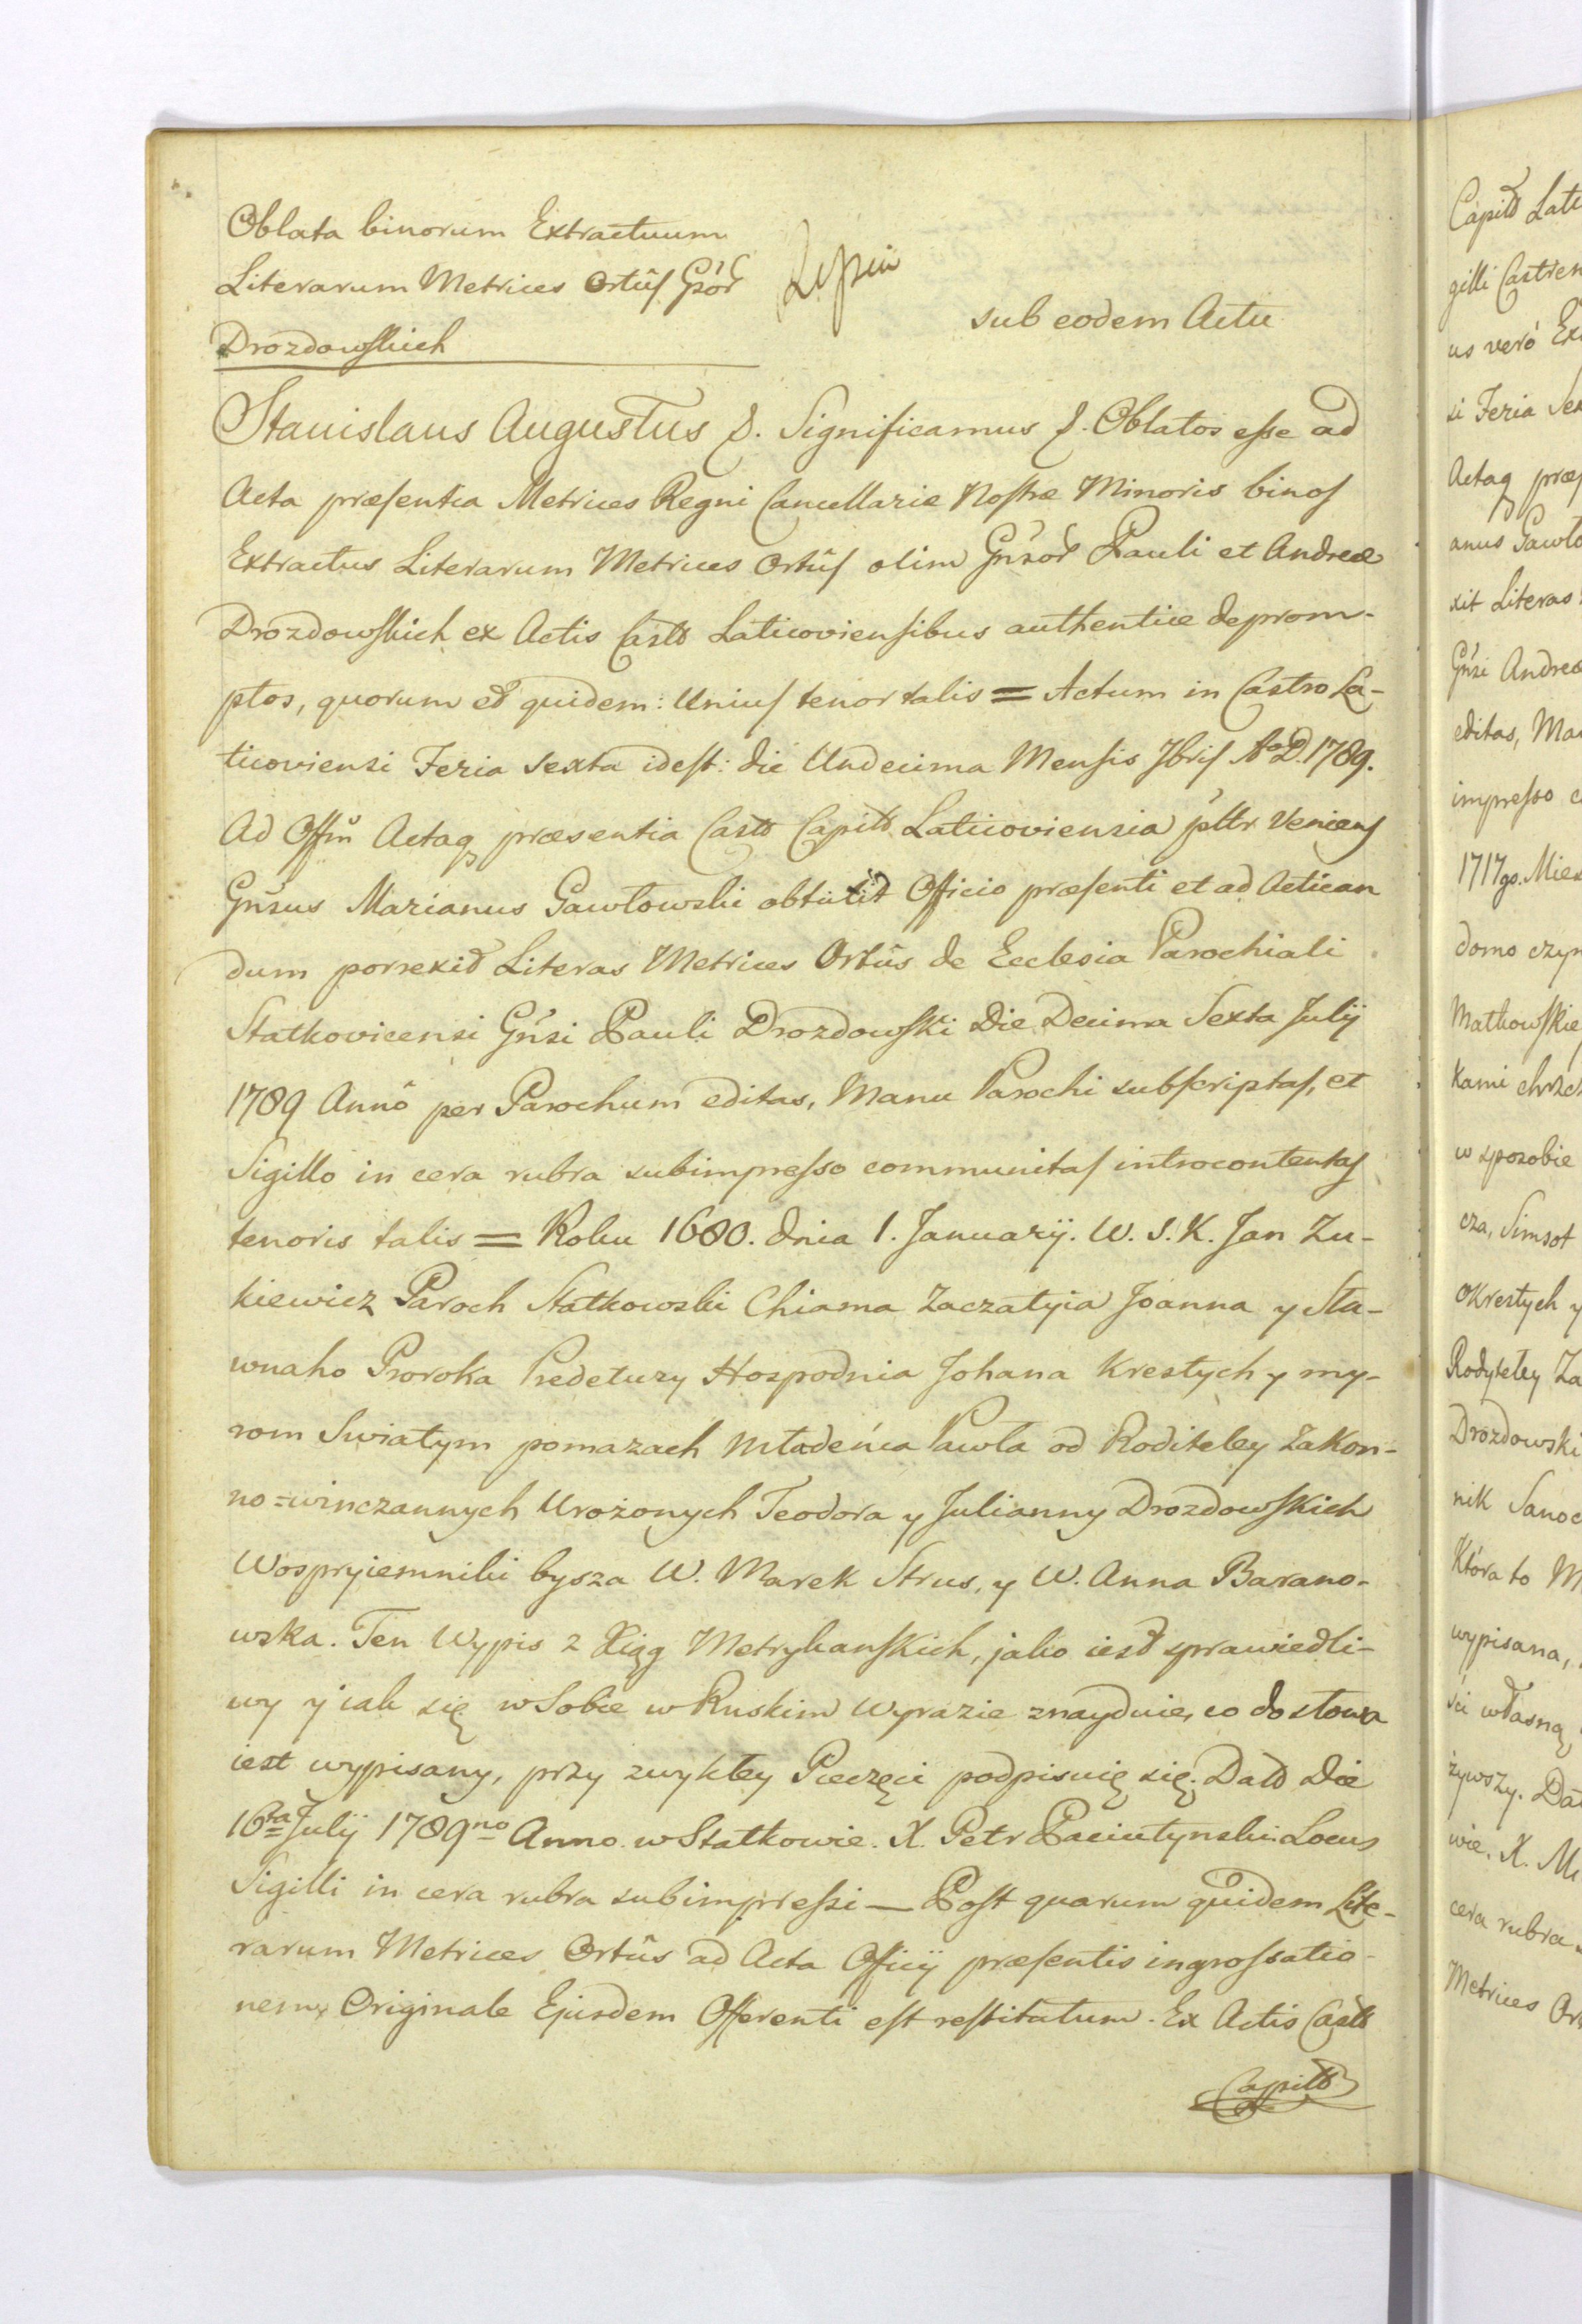 Oblata binorum Extractuum
Literarum Metrices Ortûs Gsór
Drozdowskich
sub eodem Actu
Stanislaus Augustus &. Significamus &. Oblatos esse ad
Acta præsentia Metrices Regni Cancellariæ Nostræ Minoris binos
Extractus Literarum Metrices Ortûs olim Gnsór Pauli et Andreæ
Drozdowskich ex Actis Castr Laticoviensibus authentice deprom-
ptos, quorum et quidem: Unius tenor talis = Actum in Castro La-
ticoviensi Feria Sexta idest: die Undecima Mensis 7bris Ao D. 1789.
Ad Offm Actaq præsentia Castr Capitl Laticoviensia psltr Veniens
Gnsus Marianus Gawłowski obtulit Officio præsenti et ad Actican
dum porrexit Literas Metrices Ortûs de Ecclesia Parochiali
Statkovicensi Gnsi Pauli Drozdowski Die Decima Sexta Julij
1789 Annô per Parochum editas, Manu Parochi subscriptas, et
Sigillo in cera rubra subimpresso communitas introcontentas
tenoris talis = Roku 1680. dnia 1. Januarÿ. W. S. K. Jan Zu-
kiewicz Paroch Statkowski Chiama Zaczatyia Joanna y Sła-
wnaho Proroka Predetuzy Hospodnia Johana Krestych y my-
rom Swiatym pomazach Mładeńca Pawła od Roditeley Zakon-
no=winczannych Urożonych Teodora y Julianny Drozdowskich
Wospryiemniki bysza W. Marek Strus, y W. Anna Barano-
wska. Ten Wypis z Xiąg Metrykanskich, jako iest sprawiedli-
wy y iak się w Sobie w Ruskim Wyrazie znayduie, co do słowa
iest wypisany, przy zwykłey Pieczęci podpisuię się. Datt Die
16ta Julij 1789no Anno w Statkowie. X. Petr Paciutynski. Locus
Sigilli in cera rubra subimpressi — Post quarum quidem Lite-
rarum Metrices Ortûs ad Acta Officij præsentis ingrossatio-
nem, Originale Ejusdem Offerenti est restitutum. Ex Actis Castr
Capitl
Capitl Lati
gilli Castren
us verò Ex
si Feria Sex
Actaq præs
anus Gawło
xit Literas
Gnsi Andreæ
editas, Ma
impresso c
1717go. Mies
domo czyn
Matkowskie
kami chrzes
w sposobie
cza, Simsot
Okrestych y
Rodyteley Za
Drozdowski
nik Sanoc
Która to M
wypisana,
ści własną
żywszy. Da
wie. X. M
cera rubra
Metrices Or